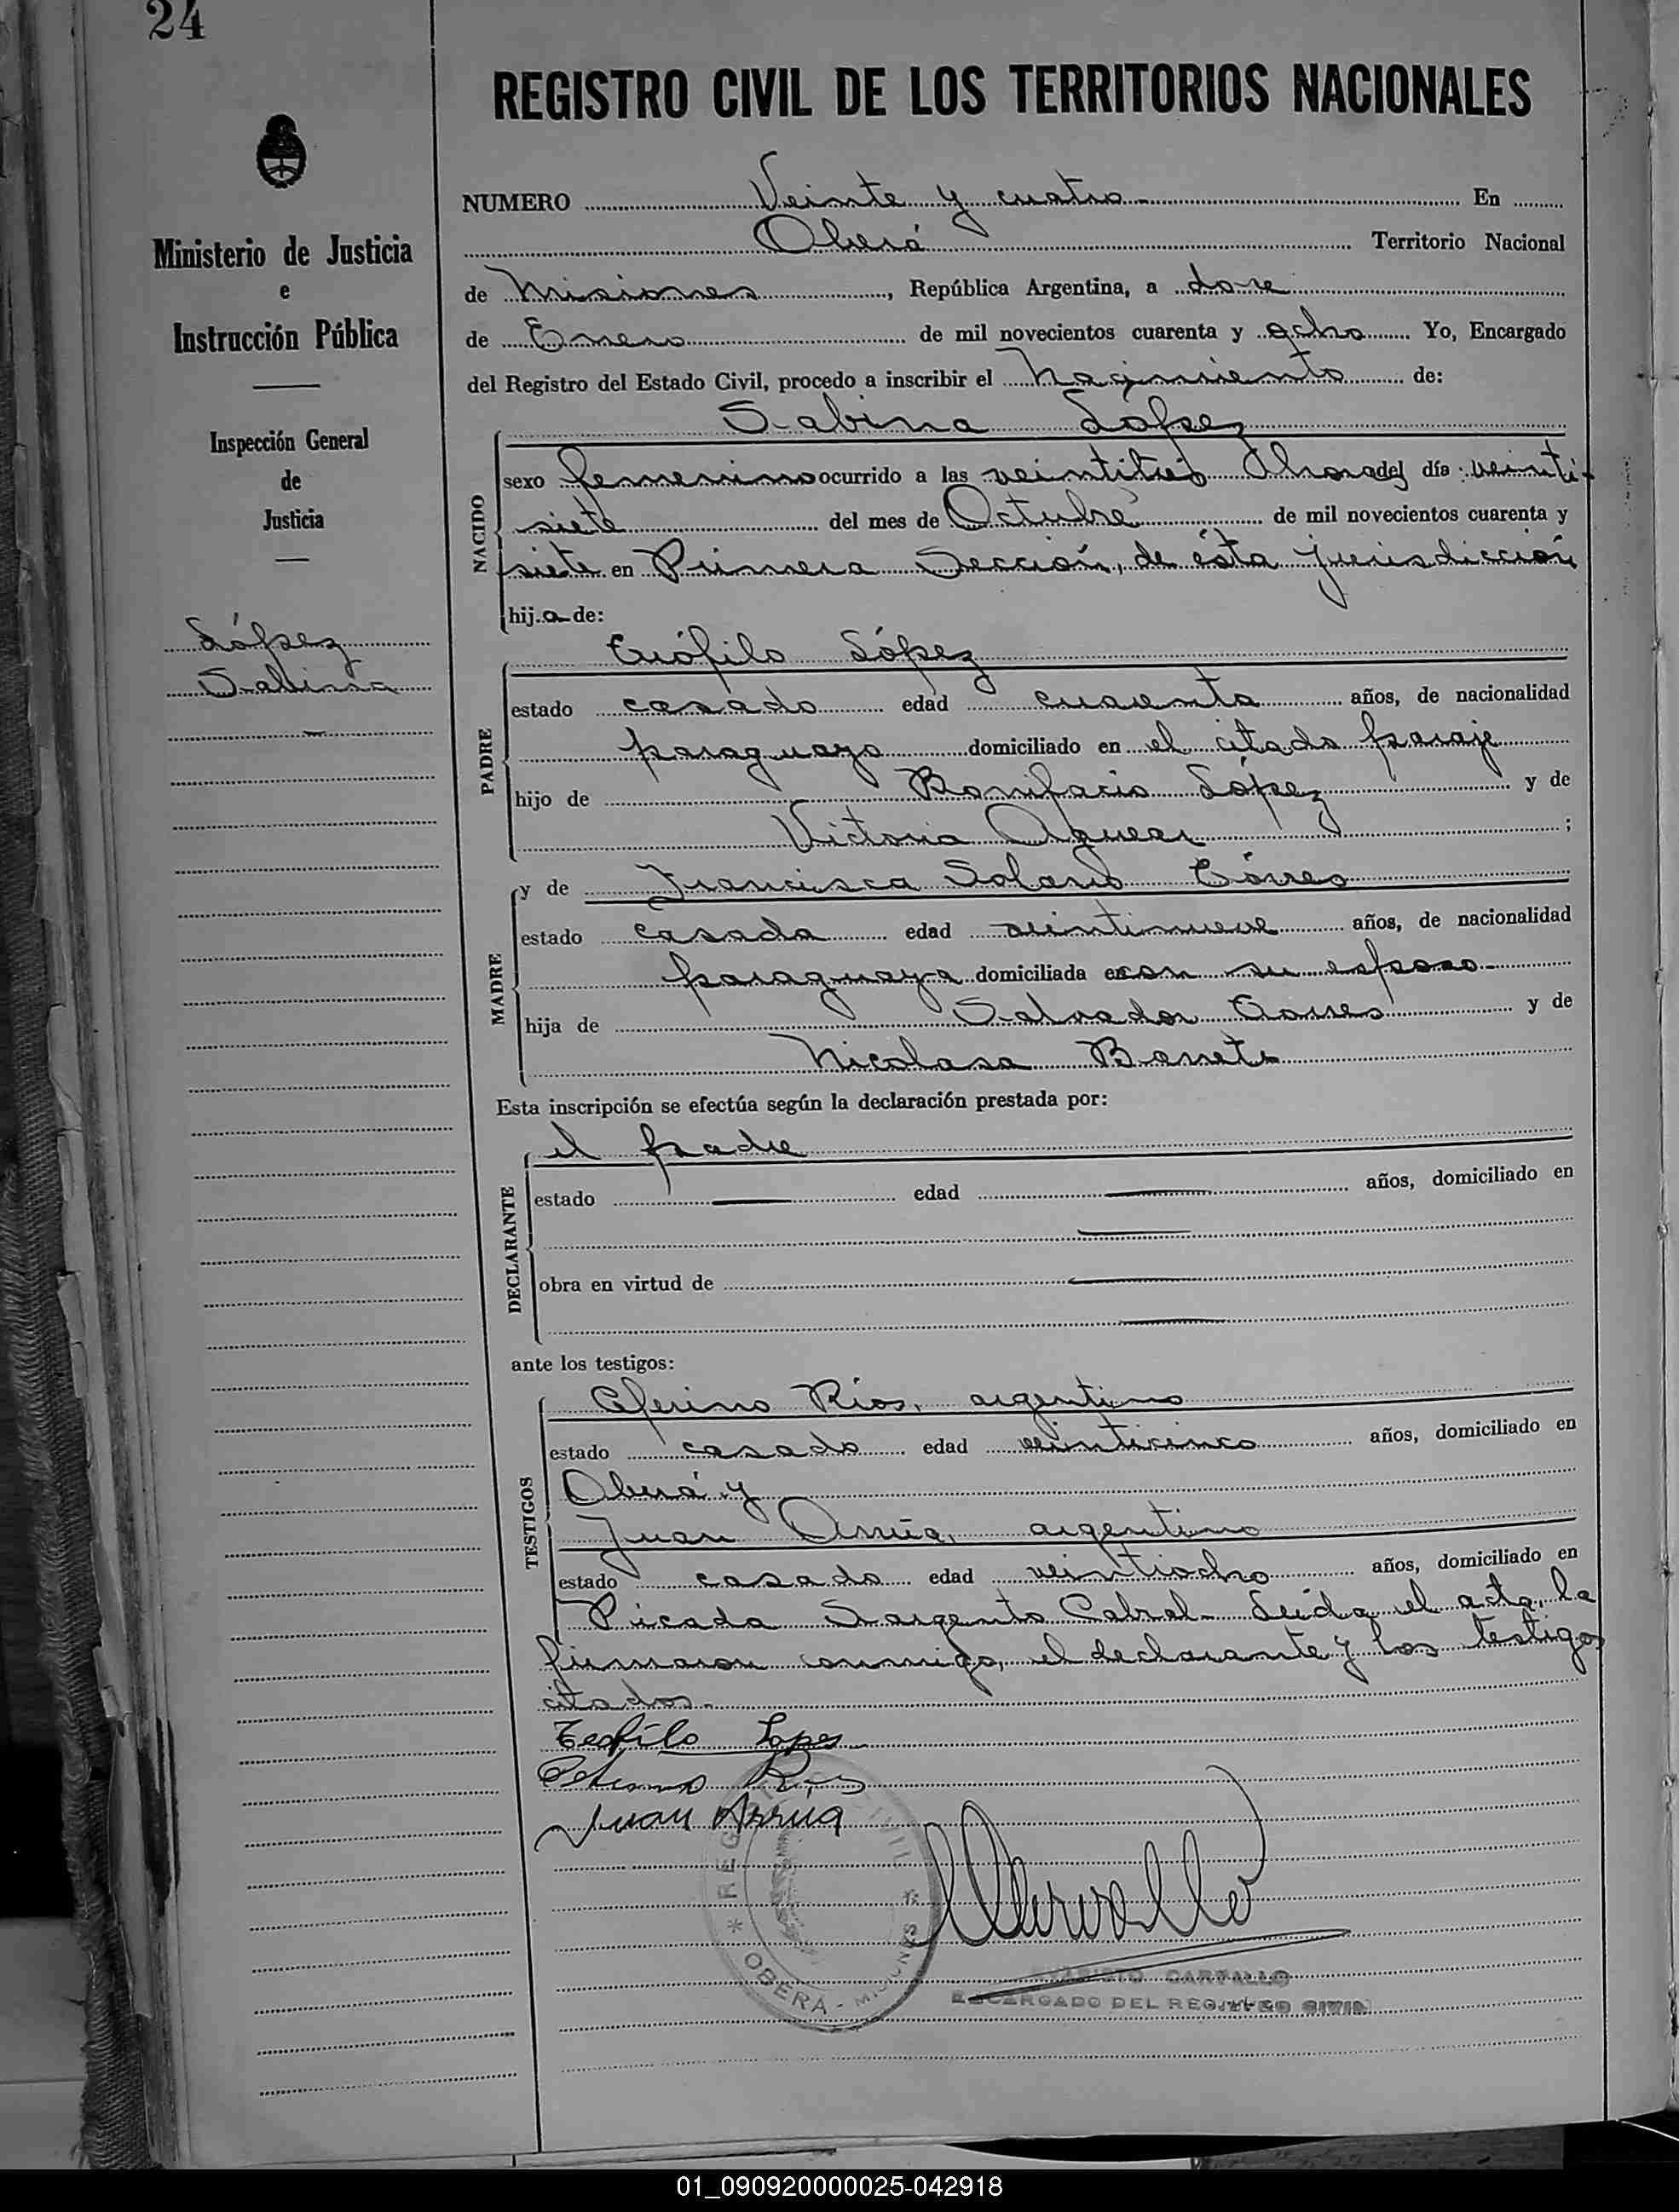 24
REGISTRO CIVIL DE LOS TERRITORIOS NACIONALES
Ministerio de Justicia
e
Instrucción Pública
Inspección General
de
Justicia
López
Sabina
NUMERO Veinte y cuatro En
Oberá Territorio Nacional
de Misiones, República Argentina, a doce
de Enero de mil novecientos cuarenta y ocho Yo, Encargado
del Registro del Estado Civil, procedo a inscribir el Nacimiento de:
Sabina López
NACIDO
sexo femenino ocurrido a las veintitres horas del día veinti-
siete del mes de Octubre de mil novecientos cuarenta y
siete en Primera Sección, de ésta jurisdicción
hij.a de:
PADRE
Teófilo López
estado casado edad cuarenta años, de nacionalidad
paraguayo domiciliado en el citado paraje
hijo de Bonifacio López y de
Victoria ;
MADRE
y de Francisca Solano Tórres
estado casada edad veintinueve años, de nacionalidad
paraguaya domiciliada en con su esposo
hija de Salvador Torres y de
Nicolasa
Esta inscripción se efectúa según la declaración prestada por:
DECLARANTE
el padre
estado edad años, domiciliado en
obra en virtud de
ante los testigos:
TESTIGOS
Ceferino Ríos, argentino
estado casado edad veinticinco años, domiciliado en
Oberá y
Juan Arrúa, argentino
estado casado edad veintiocho años, domiciliado en
Picada Sargento Cabral- Leida el acta, la
firmaron conmigo, el declarante y los testigos
citados.
Teofilo Lopes
Ceferino Rios
Juan Arrua
REGISTRO CIVIL
OBERA - MISIONES
CARVALLO
ENCARGADO DEL REGISTRO CIVIL
01_090920000025-042918